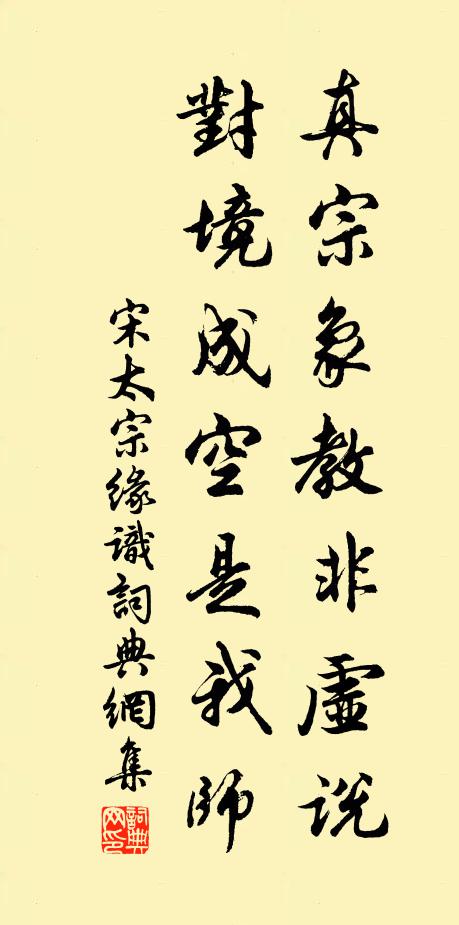 真宗象教非虛說
對境成空是我師
宋太宗緣識詞典網集
詞典網印